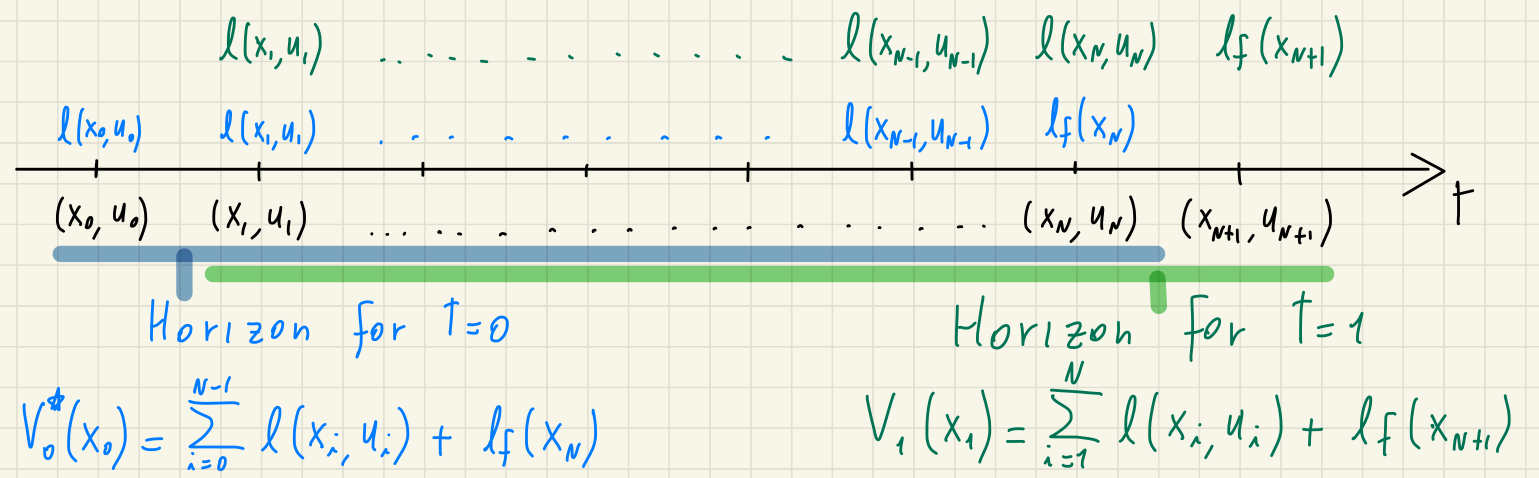 l(x₁,u₁) .. - - - - . . . . . - l(x_{N-1},u_{N-1}) l(x_N,u_N) l_f(x_{N+1})
l(x₀,u₀) l(x₁,u₁) . . . . . . . . l(x_{N-1},u_{N-1}) l_f(x_N)
t
(x₀,u₀) (x₁,u₁) ................ (x_N,u_N) (x_{N+1},u_{N+1})
Horizon for t=0 Horizon for t=1
V₀*(x₀) = ∑_{i=0}^{N-1} l(x_i,u_i) + l_f(x_N) V₁(x₁) = ∑_{i=1}^{N} l(x_i,u_i) + l_f(x_{N+1})